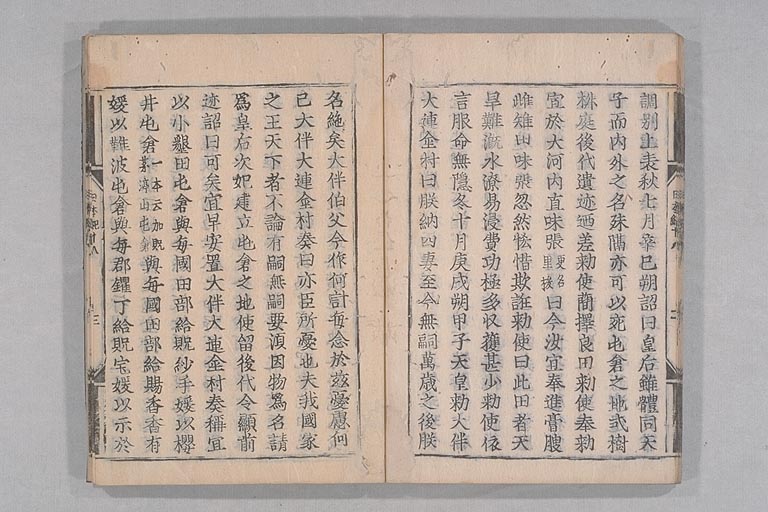 調別上表秋七月辛巳朔詔曰皇后雖體同天
子而内外之名殊隔亦可以充屯倉之地式樹
椒庭後代遺迹廼差勅使簡擇良田勅使奉勅
宣於大河内直味張更名黒梭曰今汝宜奉進膏腴
雌雉田味張忽然恡惜欺誑勅使曰此田者天
旱難漑水潦易浸費功極多収穫甚少勅使依
言服命無隠冬十月庚戌朔甲子天皇勅大伴
大連金村曰朕納四妻至今無嗣萬歳之後朕
名絶矣大伴伯父今作何計毎念於玆憂慮何
已大伴大連金村奏曰亦臣所憂也夫我國家
之王天下者不論有嗣無嗣要湏因物爲名請
爲皇后次妃建立屯倉之地使留後代令顯前
迹詔曰可矣宜早安置大伴大連金村奏稱宜
以小墾田屯倉與毎國田部給貺紗手媛以櫻
井屯倉一本云加貺茅渟山屯倉與毎國田部給賜香香有
媛以難波屯倉與毎郡钁丁給貺宅媛以示於